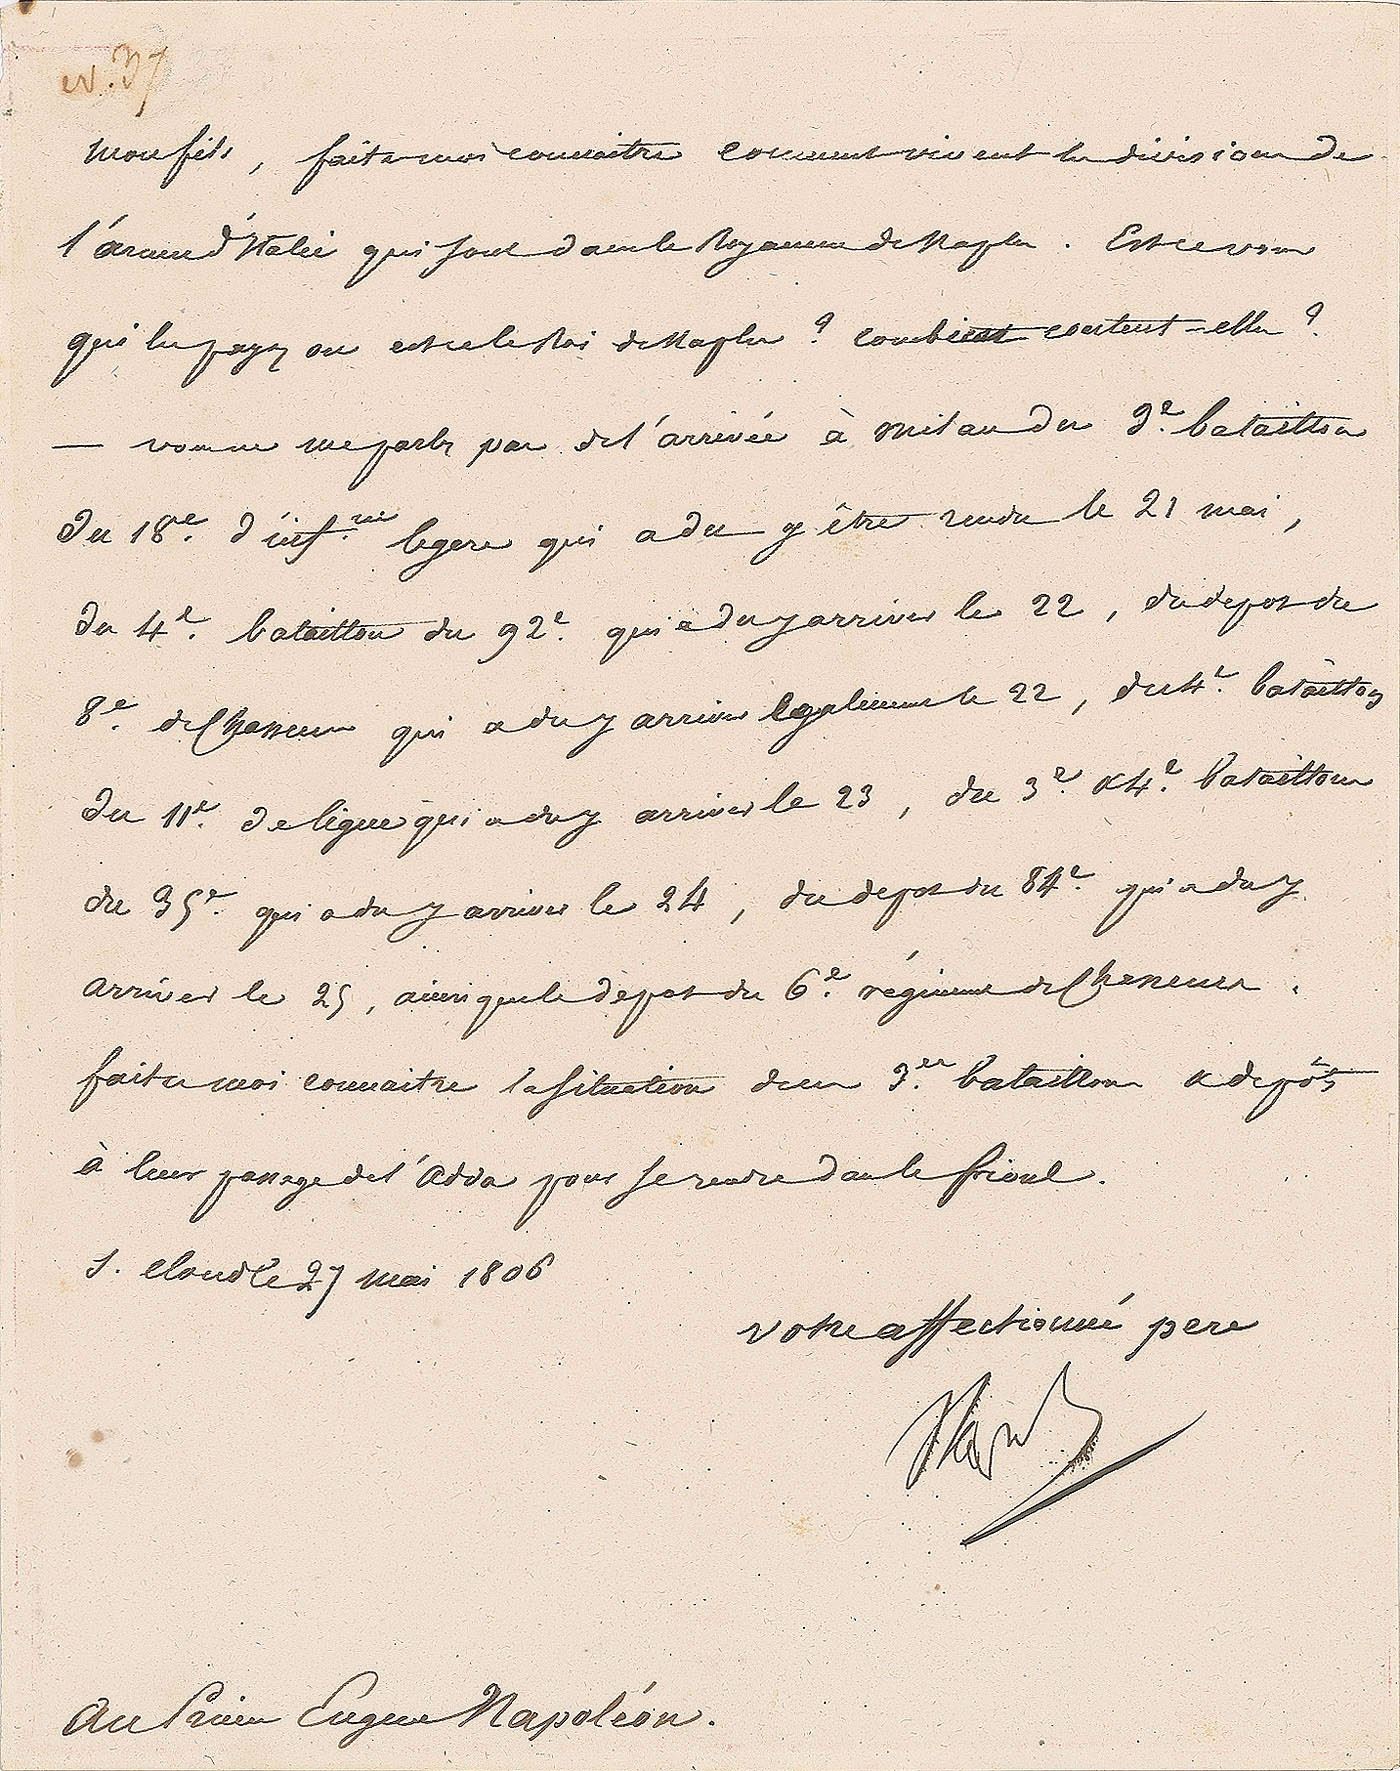 n. 37
Mon fils, faites moi connaitre comment vivent les divisions de
l'armée d'Italie qui sont dans le Royaume de Naples. Est ce vous
qui les payez ou est ce le Roi de Naples ? combien content-elles ?
— vous ne me parlez pas de l'arrivée à Milan du 3e. bataillon
du 18e. d'inf.rie legere qui a du y être rendu le 21 mai,
du 4e. bataillon du 92e. qui a du y arriver le 22, du depot du
8e. de Chasseurs qui a du y arriver egalement le 22, du 4e. bataillon
du 11e. de ligne qui a du y arriver le 23, du 3e. & 4e. bataillons
du 35e. qui a du y arriver le 24, du depot du 84e. qui a du y
arriver le 25, ainsi que le dépot du 6e. régiment de Chasseurs.
faites moi connaitre la situation de ces 3.es bataillons & depôts
à leur passage de l'Adda pour se rendre dans le frioul.
S. Cloud le 27 mai 1806
votre affectionné pere
Nap
Au Prince Eugene Napoléon.